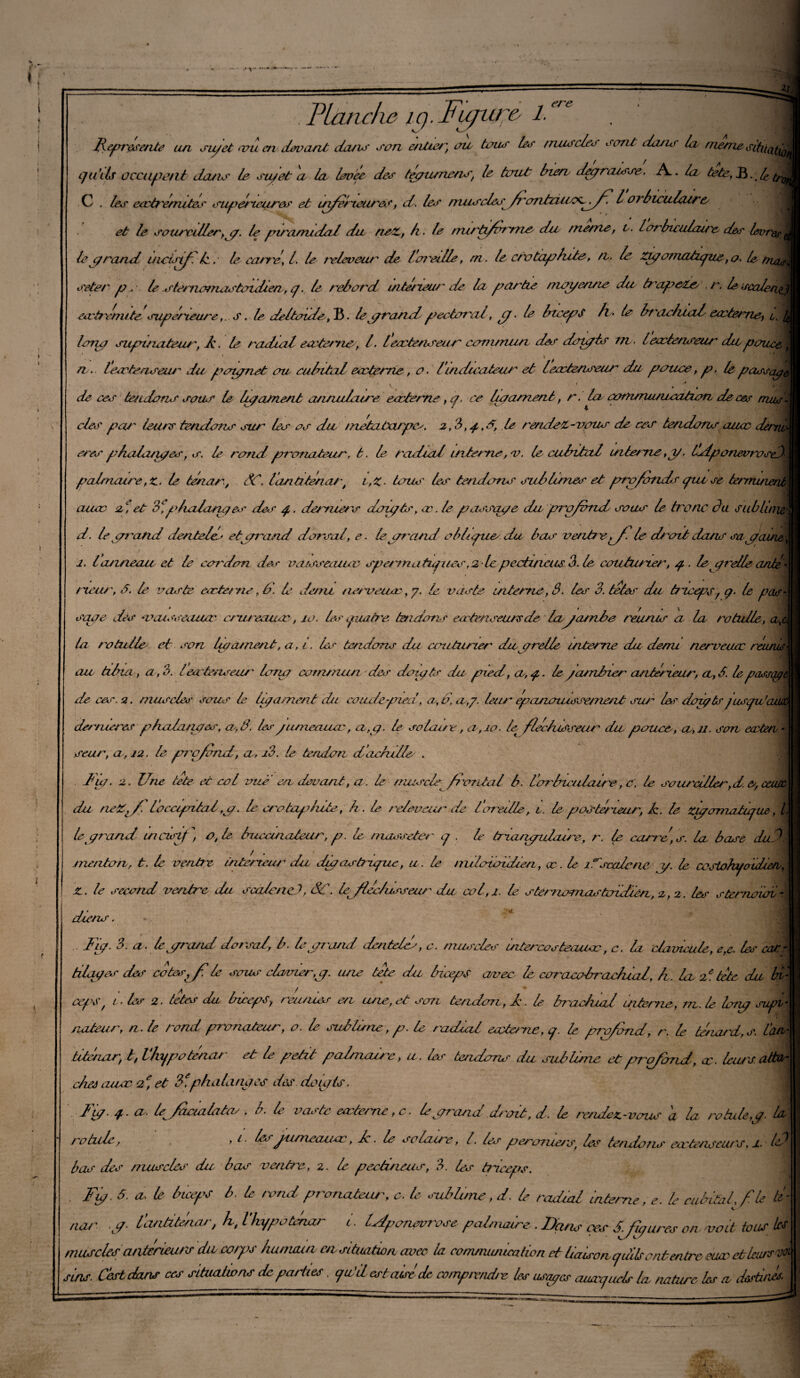 21
Planche 19. Figure 1.ere
Représente un sujet vû en devant dans son entier, où tous les muscles sont dans la même situation
qu'ils occupent dans le sujet a la levée des tégumens, le tout bien dégraissé. A. la tête, B. le tronc
C. les extrémités supérieures et inférieures, d. les muscles frontaux, f. l'orbiculaire
et le sourciller, g. le piramudal du nez, h. le mirtiforme du même, i. l'orbiculaire des levres
le grand incisif. k. le carré, l. le releveur de l'oreille, m. le crotaphite, n. le zigomatique, o. le mas-
seter p. le sternomastoïdien, q. le rebord intérieur de la partie moyenne du trapeze. r. le scalene
extrémité supérieure, s. le deltoïde, B. le grand pectoral, g. le biceps h. le brachial externe, i. le
long supinateur, k. le radial externe, l. l'extenseur commun des doigts m. l'extenseur du pouce,
n. l'extenseur du poignet ou cubital externe, o. l'indicateur et l'extenseur du pouce, p. le passage
de ces tendons sous le ligament annulaire externe, q. ce ligament, r. la communication de ces mus-
cles par leurs tendons sur les os du métatarpe. 2, 3, 4, 5, le rendez-vous de ces tendons aux derni-
eres phalanges, s. le rond pronateur, t. le radial interne, v. le cubital interne, y. L'Aponevrose
palmaire, z. le ténar, &. l'antiténar, 1, z. tous les tendons sublimes et profonds qui se terminent
aux 2.e et 3.e phalanges des 4. derniers doigts, x. le passage du profond sous le tronc du sublime
d. le grand dentelé et grand dorsal, e. le grand oblique du bas ventre f. le droit dans sa gaine,
1. l'anneau et le cordon des vaisseaux spermatiques, 2. le pectineus 3. le couturier, 4. le grelle anté-
rieur, 5. le vaste externe, 6. le demi nerveux, 7. le vaste interne, 8. les 3. têtes du triceps, 9. le pas-
sage des vaisseaux crureaux, 10. les quatre tendons extenseurs de la jambe réunis a la rotulle, a, c,
la rotulle et son ligament, a, i. les tendons du couturier du grelle interne du demi nerveux réunis
au tibia, a, 3. l'extenseur long commun des doigts du pied, a, 4. le jambier antérieur, a, 5. le passage
de ces. 2. muscles sous le ligament du coude-pied, a, 6, a, 7. leur épanouissement sur les doigts jusqu'aux
dernieres phalanges, a, 8. les jumeaux, a, g. le solaire, a, 10. le fléchisseur du pouce, a, 11. son exten-
seur, a, 12. le profond, a, 13. le tendon d'achille.
Fig. 2. Une tête et col vüe en devant, a. le muscle frontal b. l'orbiculaire, c. le sourciller, d. e, ceux
du nez, f. l'occipital, g. le crotaphite, h. le releveur de l'oreille, i. le postérieur, k. le zigomatique, l.
le grand incisif, o, le buccinateur, p. le masseter q. le triangulaire, r. le carré, s. la base du
menton, t. le ventre intérieur du digastrique, u. le miloïoïdien, x. le 1.er scalene y. le costohyoïdien,
z. le second ventre du scalene, &. le fléchisseur du col, 1. le sternomastoïdien, 2, 2. les sternoïoï-
diens.
Fig. 3. a. le grand dorsal, b. le grand dentelé, c. muscles intercosteaux, c. la clavicule, e, e. les car-
tilages des côtes, f. le sous clavier, g. une tête du biceps avec le coraco-brachial, h. la 2.e tête du bi-
ceps, i. les 2. têtes du biceps, réunies en une, et son tendon, k. le brachial interne, m. le long supi-
nateur, n. le rond pronateur, o. le sublime, p. le radial externe, q. le profond, r. le ténard, s. l'an-
titénar, t, l'hypoténar et le petit palmaire, u. les tendons du sublime et profond, x. leurs atta-
ches aux 2.e, et 3.e phalanges des doigts.
Fig. 4. a. le facialata, b. le vaste externe, c. le grand droit, d. le rendez-vous à la rotule, g. la
rotule, , i. les jumeaux, k. le solaire, l. les peroniers, les tendons extenseurs, 1. le
bas des muscles du bas ventre, 2. le pectineus, 3. les triceps.
Fig. 5. a. le biceps b. le rond pronateur, c. le sublime, d. le radial interne, e. le cubital, f. le té-
nar g. l'antiténar, h, l'hypoténar i. L'Aponevrose palmaire. Dans ces 5 figures on voit tous les
muscles antérieurs du corps humain en situation avec la communication et liaison qu'ils ont entre eux et leurs voi
sins. C'est dans ces situations de parties, qu'il est aisé de comprendre les usages auxquels la nature les a destinés.